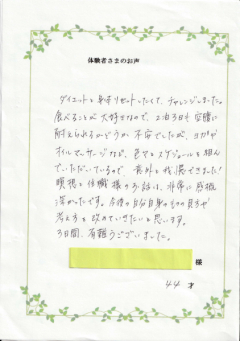 体験者さまのお声
ダイエットと身体リセットしたくて、チャレンジしました。
食べることが大好きなので、2泊3日も空腹に
耐えられるかどうか不安でしたが、ヨガや
オイルマッサージなど、色々とスケジュールを組ん
でいただいているので意外と我慢できました!
瞑想と住職様のお話は、非常に感慨
深かったです。今後の自分自身のものの見方や
考え方を改めていきたいと思います。
3日間、有難うございました。
様
44才